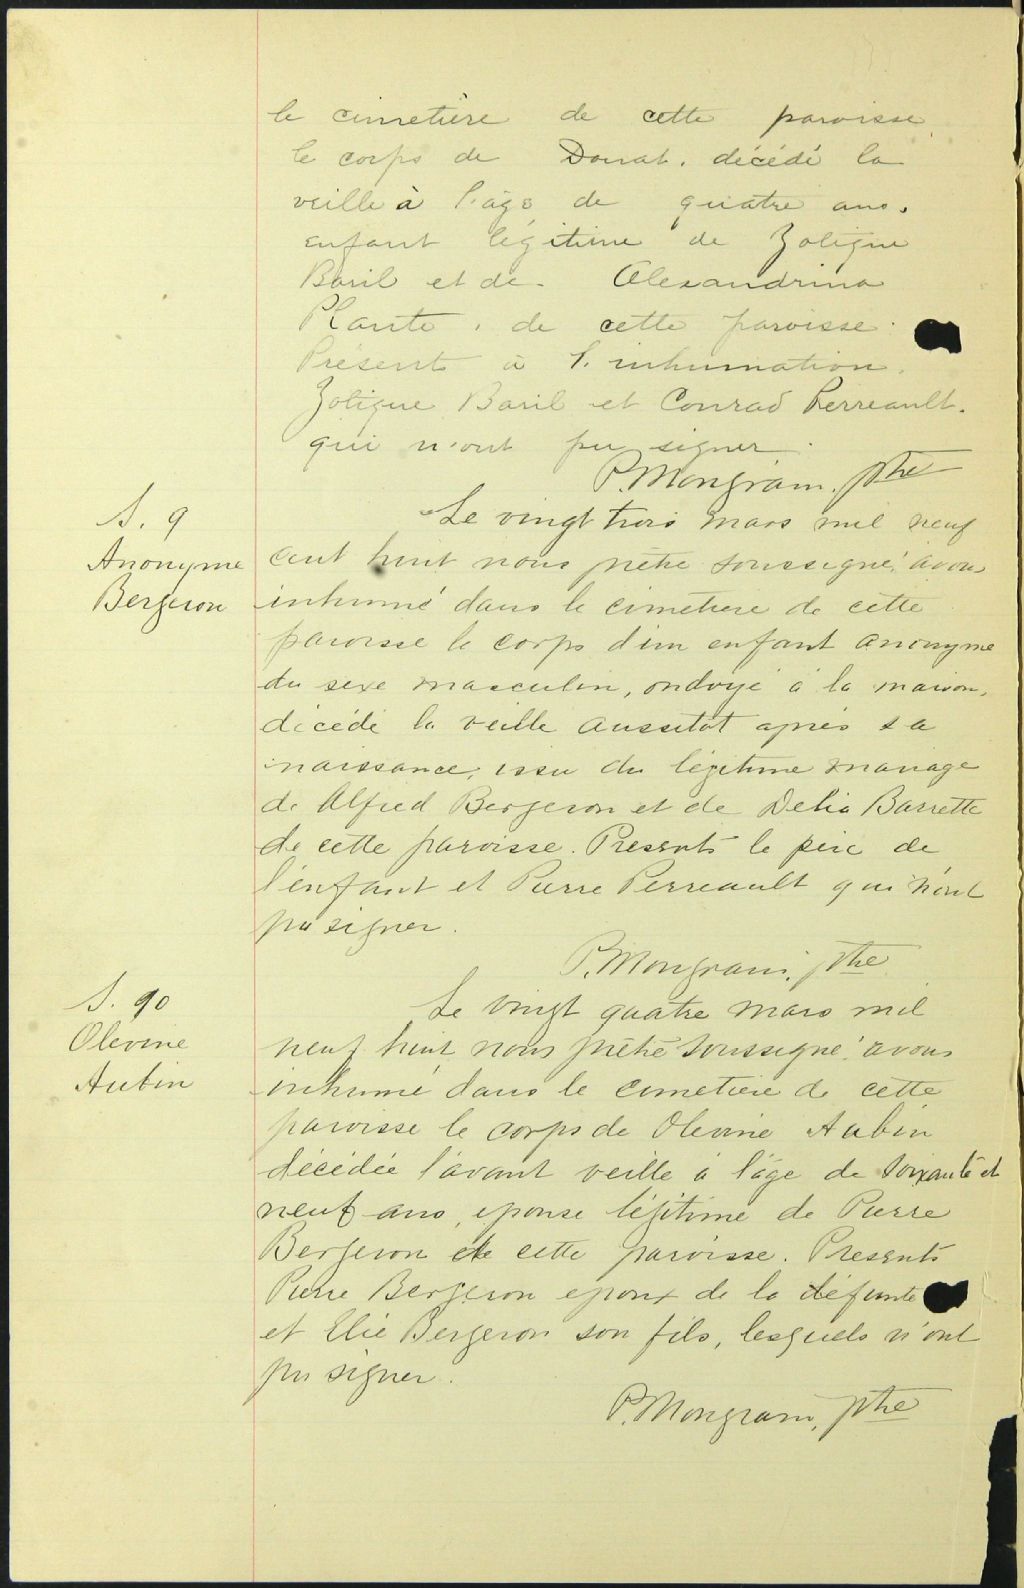 le cimetière de cette paroisse
le corps de Donat, décédé la
veille à l'âge de quatre ans,
enfant légitime de Zotique
Baril et de Alexandrina
Plante, de cette paroisse.
Présents à l'inhumation,
Zotique Baril et Conrad Perreault.
qui n'ont pu signer.
P. Mongrain, ptre
S. 9
Anonyme
Bergeron
Le vingt trois mars mil neuf
cent huit nous prêtre soussigné, avons
inhumé dans le cimetiere de cette
paroisse le corps d'un enfant anonyme
du sexe masculin, ondoyé à la maison,
décédé la veille aussitôt après sa
naissance, issu du légitime mariage
de Alfred Bergeron et de Delia Barrette
de cette paroisse. Presents le père de
l'enfant et Pierre Perreault qui n'ont
pu signer.
P. Mongrain, ptre
S. 10
Olevine
Aubin
Le vingt quatre mars mil
neuf huit nous prêtre soussigné, avons
inhumé dans le cimetiere de cette
paroisse le corps de Olevine Aubin
décédée l'avant veille à l'âge de soixante et
neuf ans, epouse légitime de Pierre
Bergeron de cette paroisse. Presents
Pierre Bergeron epoux de la défunte
et Elie Bergeron son fils, lesquels n'ont
pu signer.
P. Mongrain, ptre